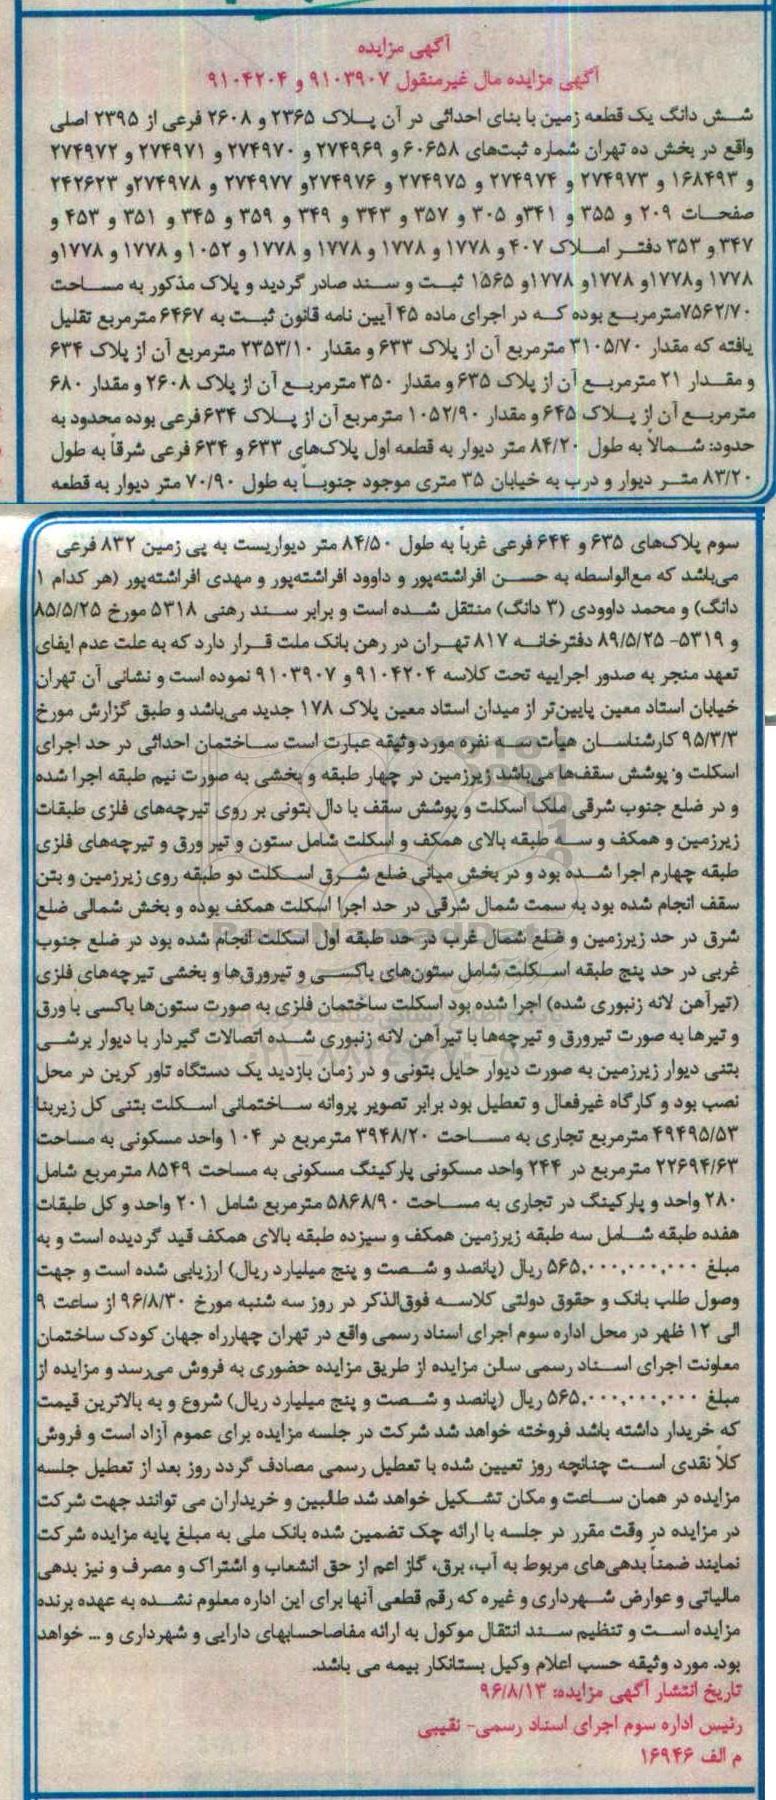 آگهی مزایده
آگهی مزایده مال غیرمنقول ۹۱۰۳۹۰۷ و ۹۱۰۴۲۰۴
شش دانگ یک قطعه زمین با بنای احداثی در آن پلاک ۲۳۶۵ و ۲۶۰۸ فرعی از ۲۳۹۵ اصلی
واقع در بخش ده تهران شماره ثبت‌های ۶۰۶۵۸ و ۲۷۴۹۶۹ و ۲۷۴۹۷۰ و ۲۷۴۹۷۱ و ۲۷۴۹۷۲
و ۱۶۸۴۹۳ و ۲۷۴۹۷۳ و ۲۷۴۹۷۴ و ۲۷۴۹۷۵ و ۲۷۴۹۷۶و ۲۷۴۹۷۷ و ۲۷۴۹۷۸و ۲۴۲۶۲۳
صفحات ۲۰۹ و ۳۵۵ و ۳۴۱و ۳۰۵ و ۳۵۷ و ۳۴۳ و ۳۴۹ و ۳۵۹ و ۳۴۵ و ۳۵۱ و ۴۵۳ و
۳۴۷ و ۳۵۳ دفتر املاک ۴۰۷ و ۱۷۷۸ و ۱۷۷۸ و ۱۷۷۸ و ۱۷۷۸ و ۱۰۵۲ و ۱۷۷۸ و ۱۷۷۸و
۱۷۷۸ و۱۷۷۸و ۱۷۷۸و ۱۷۷۸و ۱۵۶۵ ثبت و سند صادر گردید و پلاک مذکور به مساحت
۷۵۶۲/۷۰مترمربع بوده که در اجرای ماده ۴۵ آیین نامه قانون ثبت به ۶۴۶۷ مترمربع تقلیل
یافته که مقدار ۳۱۰۵/۷۰ مترمربع آن از پلاک ۶۳۳ و مقدار ۲۳۵۳/۱۰ مترمربع آن از پلاک ۶۳۴
و مقدار ۲۱ مترمربع آن از پلاک ۶۳۵ و مقدار ۳۵۰ مترمربع آن از پلاک ۲۶۰۸ و مقدار ۶۸۰
مترمربع آن از پلاک ۶۴۵ و مقدار ۱۰۵۲/۹۰ مترمربع آن از پلاک ۶۳۴ فرعی بوده محدود به
حدود: شمالاً به طول ۸۴/۲۰ متر دیوار به قطعه اول پلاک‌های ۶۳۳ و ۶۳۴ فرعی شرقاً به طول
۸۳/۲۰ متر دیوار و درب به خیابان ۳۵ متری موجود جنوباً به طول ۷۰/۹۰ متر دیوار به قطعه
سوم پلاک‌های ۶۳۵ و ۶۴۴ فرعی غرباً به طول ۸۴/۵۰ متر دیواریست به پی زمین ۸۳۲ فرعی
می‌باشد که مع‌الواسطه به حسن افراشته‌پور و داوود افراشته‌پور و مهدی افراشته‌پور (هر کدام ۱
دانگ) و محمد داوودی (۳ دانگ) منتقل شده است و برابر سند رهنی ۵۳۱۸ مورخ ۸۵/۵/۲۵
و ۵۳۱۹- ۸۹/۵/۲۵ دفترخانه ۸۱۷ تهران در رهن بانک ملت قرار دارد که به علت عدم ایفای
تعهد منجر به صدور اجراییه تحت کلاسه ۹۱۰۴۲۰۴ و ۹۱۰۳۹۰۷ نموده است و نشانی آن تهران
خیابان استاد معین پایین‌تر از میدان استاد معین پلاک ۱۷۸ جدید می‌باشد و طبق گزارش مورخ
۹۵/۳/۳ کارشناسان هیأت سه نفره مورد وثیقه عبارت است ساختمان احداثی در حد اجرای
اسکلت و پوشش سقف‌ها می‌باشد زیرزمین در چهار طبقه و بخشی به صورت نیم طبقه اجرا شده
و در ضلع جنوب شرقی ملک اسکلت و پوشش سقف با دال بتونی بر روی تیرچه‌های فلزی طبقات
زیرزمین و همکف و سه طبقه بالای همکف و اسکلت شامل ستون و تیر ورق و تیرچه‌های فلزی
طبقه چهارم اجرا شده بود و در بخش میانی ضلع شرق اسکلت دو طبقه روی زیرزمین و بتن
سقف انجام شده بود به سمت شمال شرقی در حد اجرا اسکلت همکف بوده و بخش شمالی ضلع
شرق در حد زیرزمین و ضلع شمال غرب در حد طبقه اول اسکلت انجام شده بود در ضلع جنوب
غربی در حد پنج طبقه اسکلت شامل ستون‌های باکسی و تیرورق‌ها و بخشی تیرچه‌های فلزی
(تیرآهن لانه زنبوری شده) اجرا شده بود اسکلت ساختمان فلزی به صورت ستون‌ها باکسی با ورق
و تیرها به صورت تیرورق و تیرچه‌ها با تیرآهن لانه زنبوری شده اتصالات گیردار با دیوار برشی
بتنی دیوار زیرزمین به صورت دیوار حایل بتونی و در زمان بازدید یک دستگاه تاور کرین در محل
نصب بود و کارگاه غیرفعال و تعطیل بود برابر تصویر پروانه ساختمانی اسکلت بتنی کل زیربنا
۴۹۴۹۵/۵۳ مترمربع تجاری به مساحت ۳۹۴۸/۲۰ مترمربع در ۱۰۴ واحد مسکونی به مساحت
۲۲۶۹۴/۶۳ مترمربع در ۲۴۴ واحد مسکونی پارکینگ مسکونی به مساحت ۸۵۴۹ مترمربع شامل
۲۸۰ واحد و پارکینگ در تجاری به مساحت ۵۸۶۸/۹۰ مترمربع شامل ۲۰۱ واحد و کل طبقات
هفده طبقه شامل سه طبقه زیرزمین همکف و سیزده طبقه بالای همکف قید گردیده است و به
مبلغ ۵۶۵,۰۰۰,۰۰۰,۰۰۰ ریال (پانصد و شصت و پنج میلیارد ریال) ارزیابی شده است و جهت
وصول طلب بانک و حقوق دولتی کلاسه فوق‌الذکر در روز سه شنبه مورخ ۹۶/۸/۳۰ از ساعت ۹
الی ۱۲ ظهر در محل اداره سوم اجرای اسناد رسمی واقع در تهران چهارراه جهان کودک ساختمان
معاونت اجرای اسناد رسمی سالن مزایده از طریق مزایده حضوری به فروش می‌رسد و مزایده از
مبلغ ۵۶۵,۰۰۰,۰۰۰,۰۰۰ ریال (پانصد و شصت و پنج میلیارد ریال) شروع و به بالاترین قیمت
که خریدار داشته باشد فروخته خواهد شد شرکت در جلسه مزایده برای عموم آزاد است و فروش
کلاً نقدی است چنانچه روز تعیین شده با تعطیل رسمی مصادف گردد روز بعد از تعطیل جلسه
مزایده در همان ساعت و مکان تشکیل خواهد شد طالبین و خریداران می توانند جهت شرکت
در مزایده در وقت مقرر در جلسه با ارائه چک تضمین شده بانک ملی به مبلغ پایه مزایده شرکت
نمایند ضمناً بدهی‌های مربوط به آب، برق، گاز اعم از حق انشعاب و اشتراک و مصرف و نیز بدهی
مالیاتی و عوارض شهرداری و غیره که رقم قطعی آنها برای این اداره معلوم نشده به عهده برنده
مزایده است و تنظیم سند انتقال موکول به ارائه مفاصاحسابهای دارایی و شهرداری و ... خواهد
بود. مورد وثیقه حسب اعلام وکیل بستانکار بیمه می باشد.
تاریخ انتشار آگهی مزایده: ۹۶/۸/۱۳
رئیس اداره سوم اجرای اسناد رسمی- نقیبی
م الف ۱۶۹۴۶